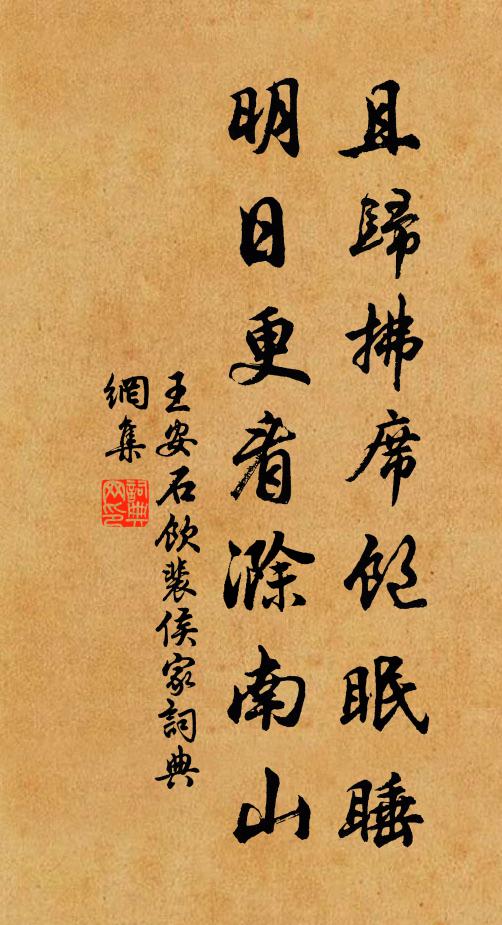 且歸拂席飽眠睡
明日更看滁南山
王安石飲裴侯家詞典
網集
詞典
网印